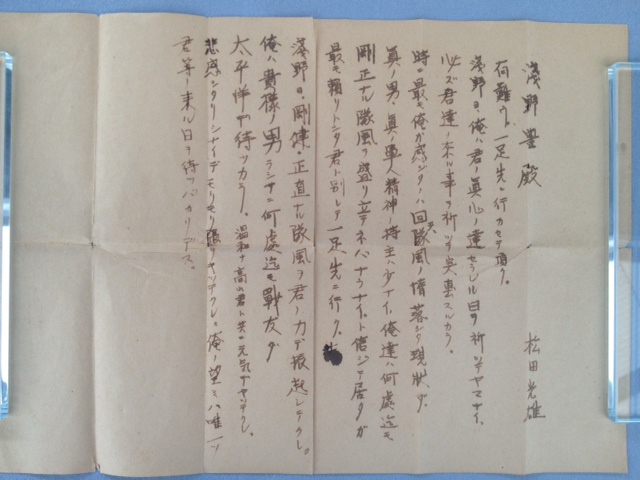 松田光雄
淺野豊殿
有難ウ、一足先ニ行カセテ頂ク。
淺野ヨ、俺ハ君ノ眞心ノ達セラレル日ヲ祈ッテヤマナイ。
必ズ君達ノ來ル事ヲ祈ッテスルカラ。
時ニ最モ俺ガ感ジタノハ回天隊風ノ堕落シタ現状ダ。
眞ノ男、眞ノ軍人精神ノ持主ハ少ナイ。俺達ハ何處迄モ
剛正ナル隊風ヲ盛リ立テネバナラナイト信ジテ居タガ
最モ頼リトシタ君ト別レテ一足先ニ行ク。
淺野ヨ、剛健・正直ナル隊風ヲ君ノ力デ振起シテクレ。
俺ハ貴様ノ男ラシサニ何處迄モ戰友ダ
太平洋デ待ツカラ。温和ナ君ト共ニ元気デヤッテクレ。
悲感シタリシナイデモリモリ張リヤッテクレ。俺ノ望ミハ唯一ツ
君等ノ来ル日ヲ待ツバカリデス。